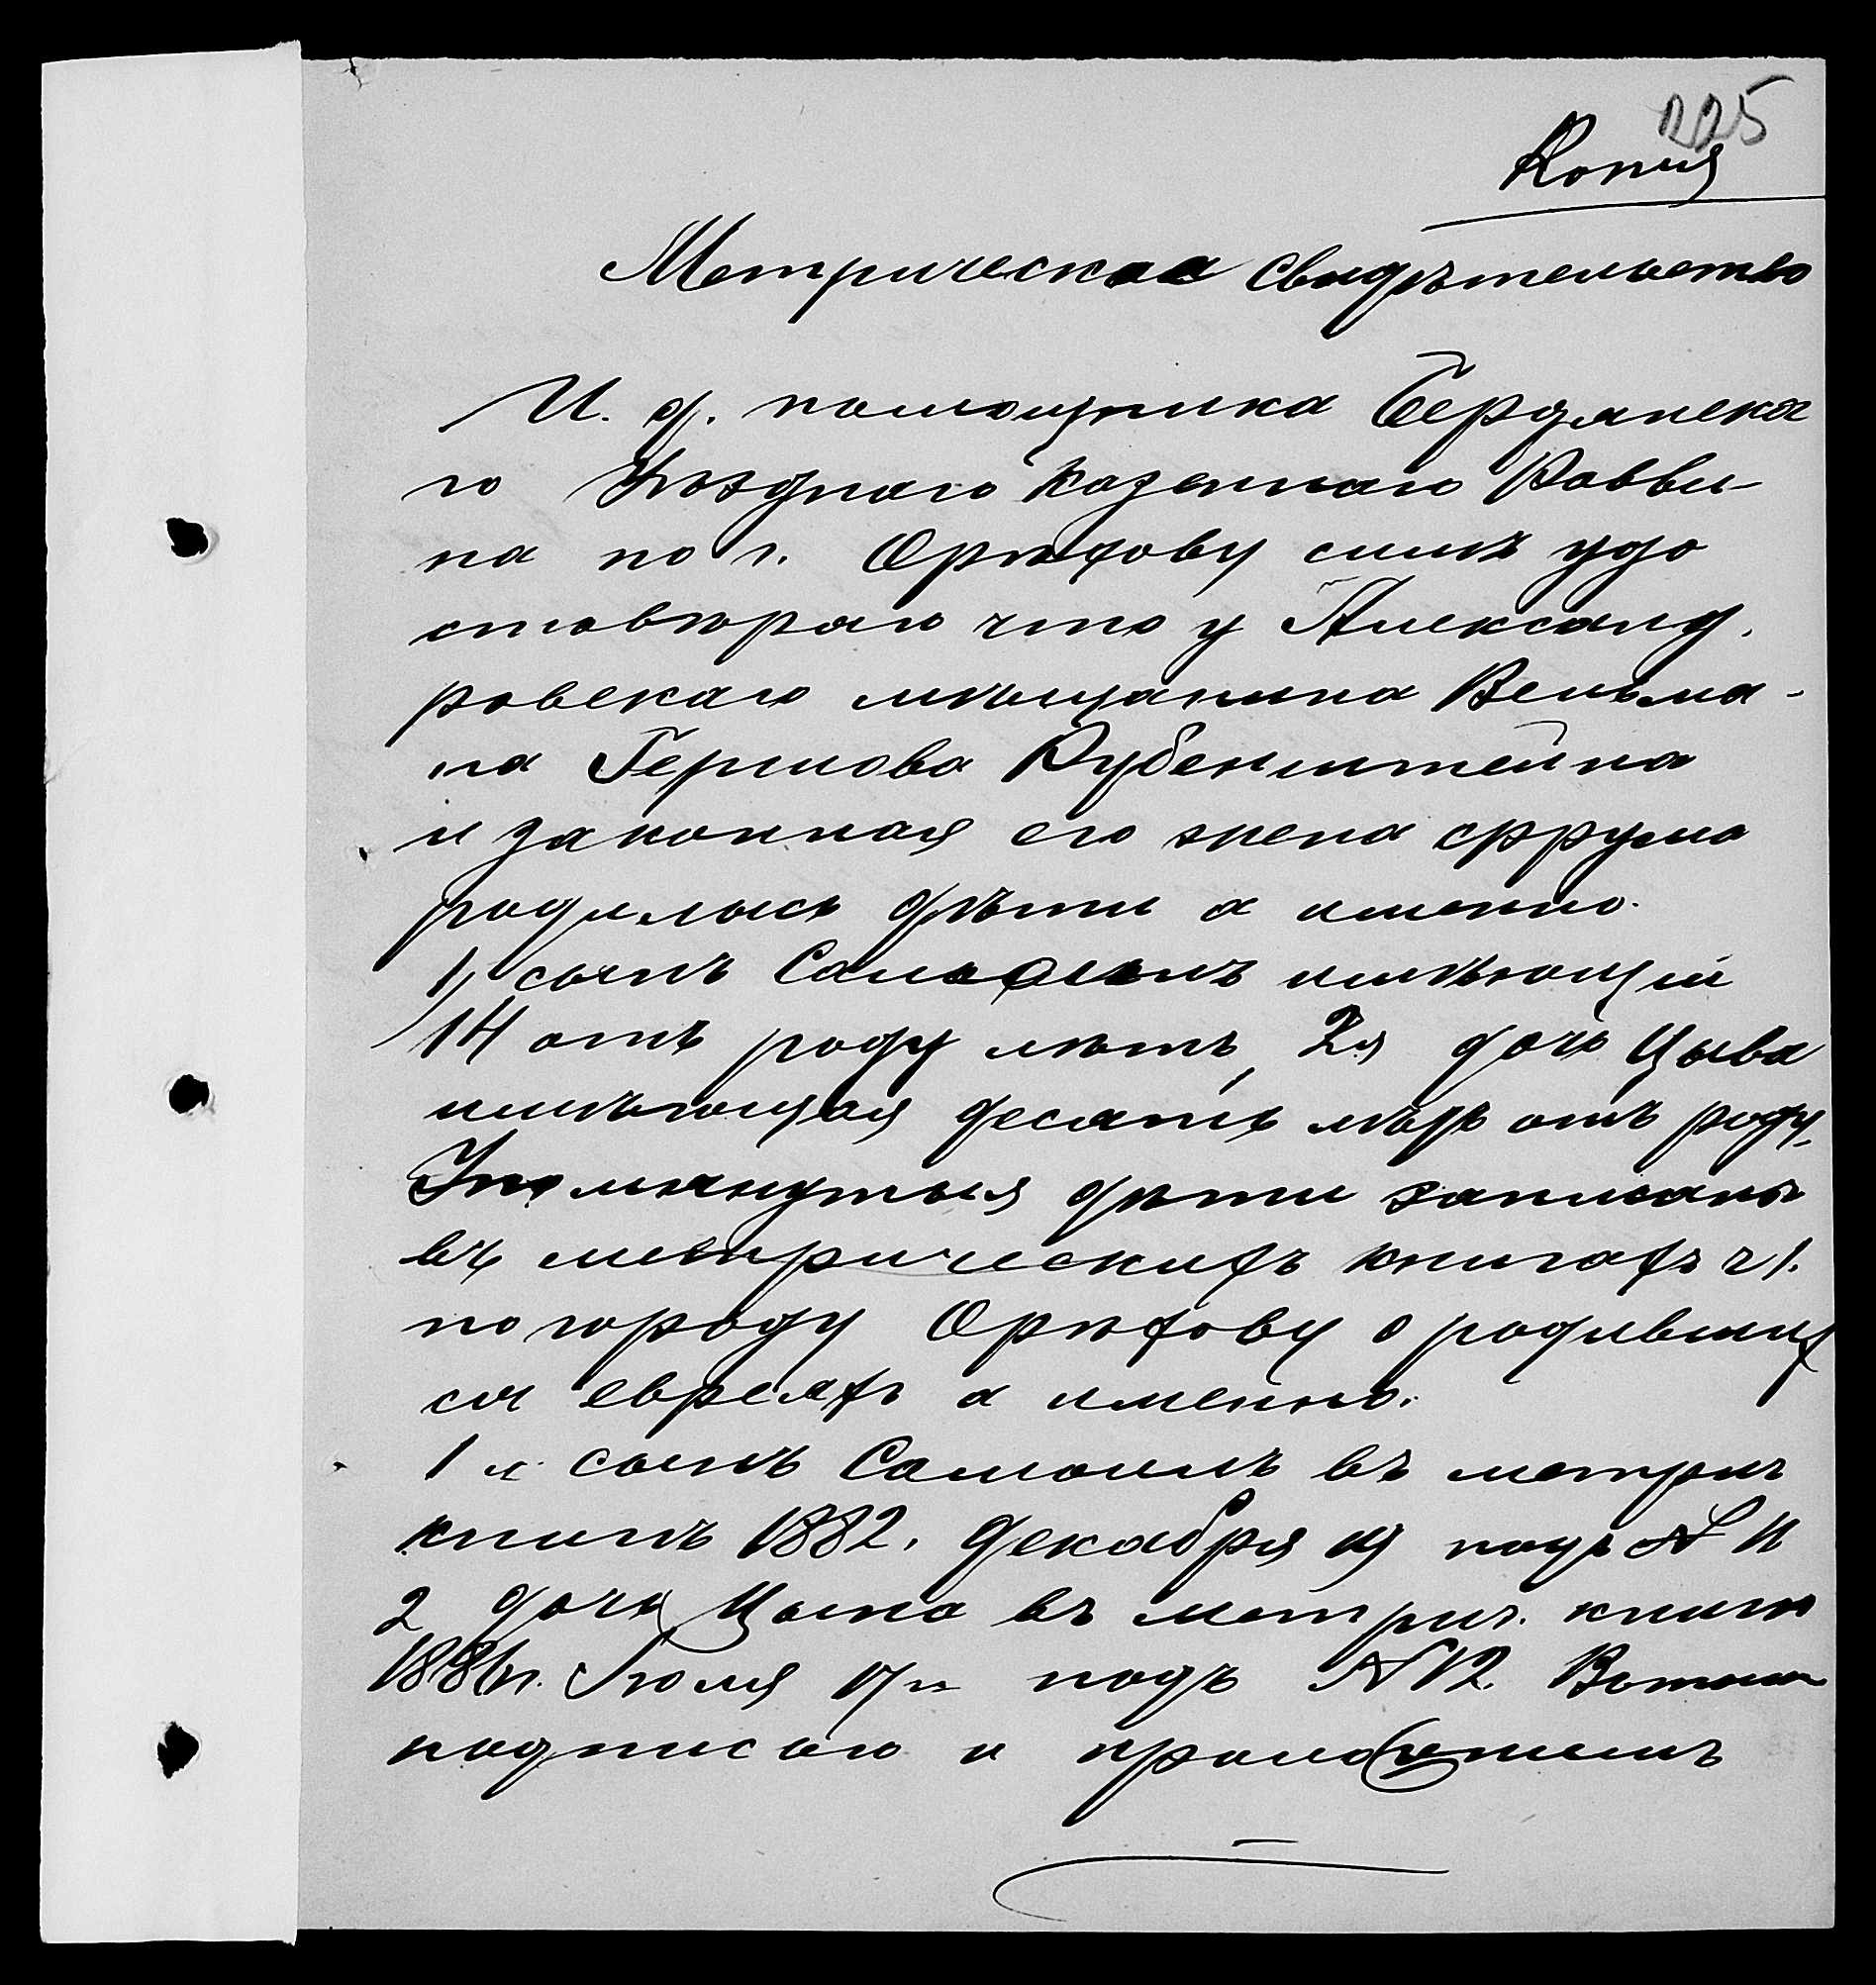 225
Копия
Метрическое свидѣтельство
И. д. помощника Бердянска
го Уѣзднаго Казеннаго Равви-
на по г. Орѣхову симъ удо
стовѣряю что у Александ.
ровскаго мѣщанина Вельма-
на Гершова Рубенштейна
и законная его жена Фрума
родились дѣти а именно.
1) сынъ Самоилъ имѣющій
14 отъ роду лѣтъ, 2я дочь Цыва
имѣющая десять лѣтъ отъ роду,
Упомянутыя дѣти записаны
въ метрическихъ книгахъ ч 1.
по городу Орѣхову о родивших
ся евреяхъ а именно:
1 й сынъ Самоилъ въ метрич
книгѣ 1882. Декабря 19 подъ № 11
2 дочь Цыва въ метрич. книгѣ
1886 г. Іюля 17го подъ № 12. Въ томъ
подписью и приложеніемъ